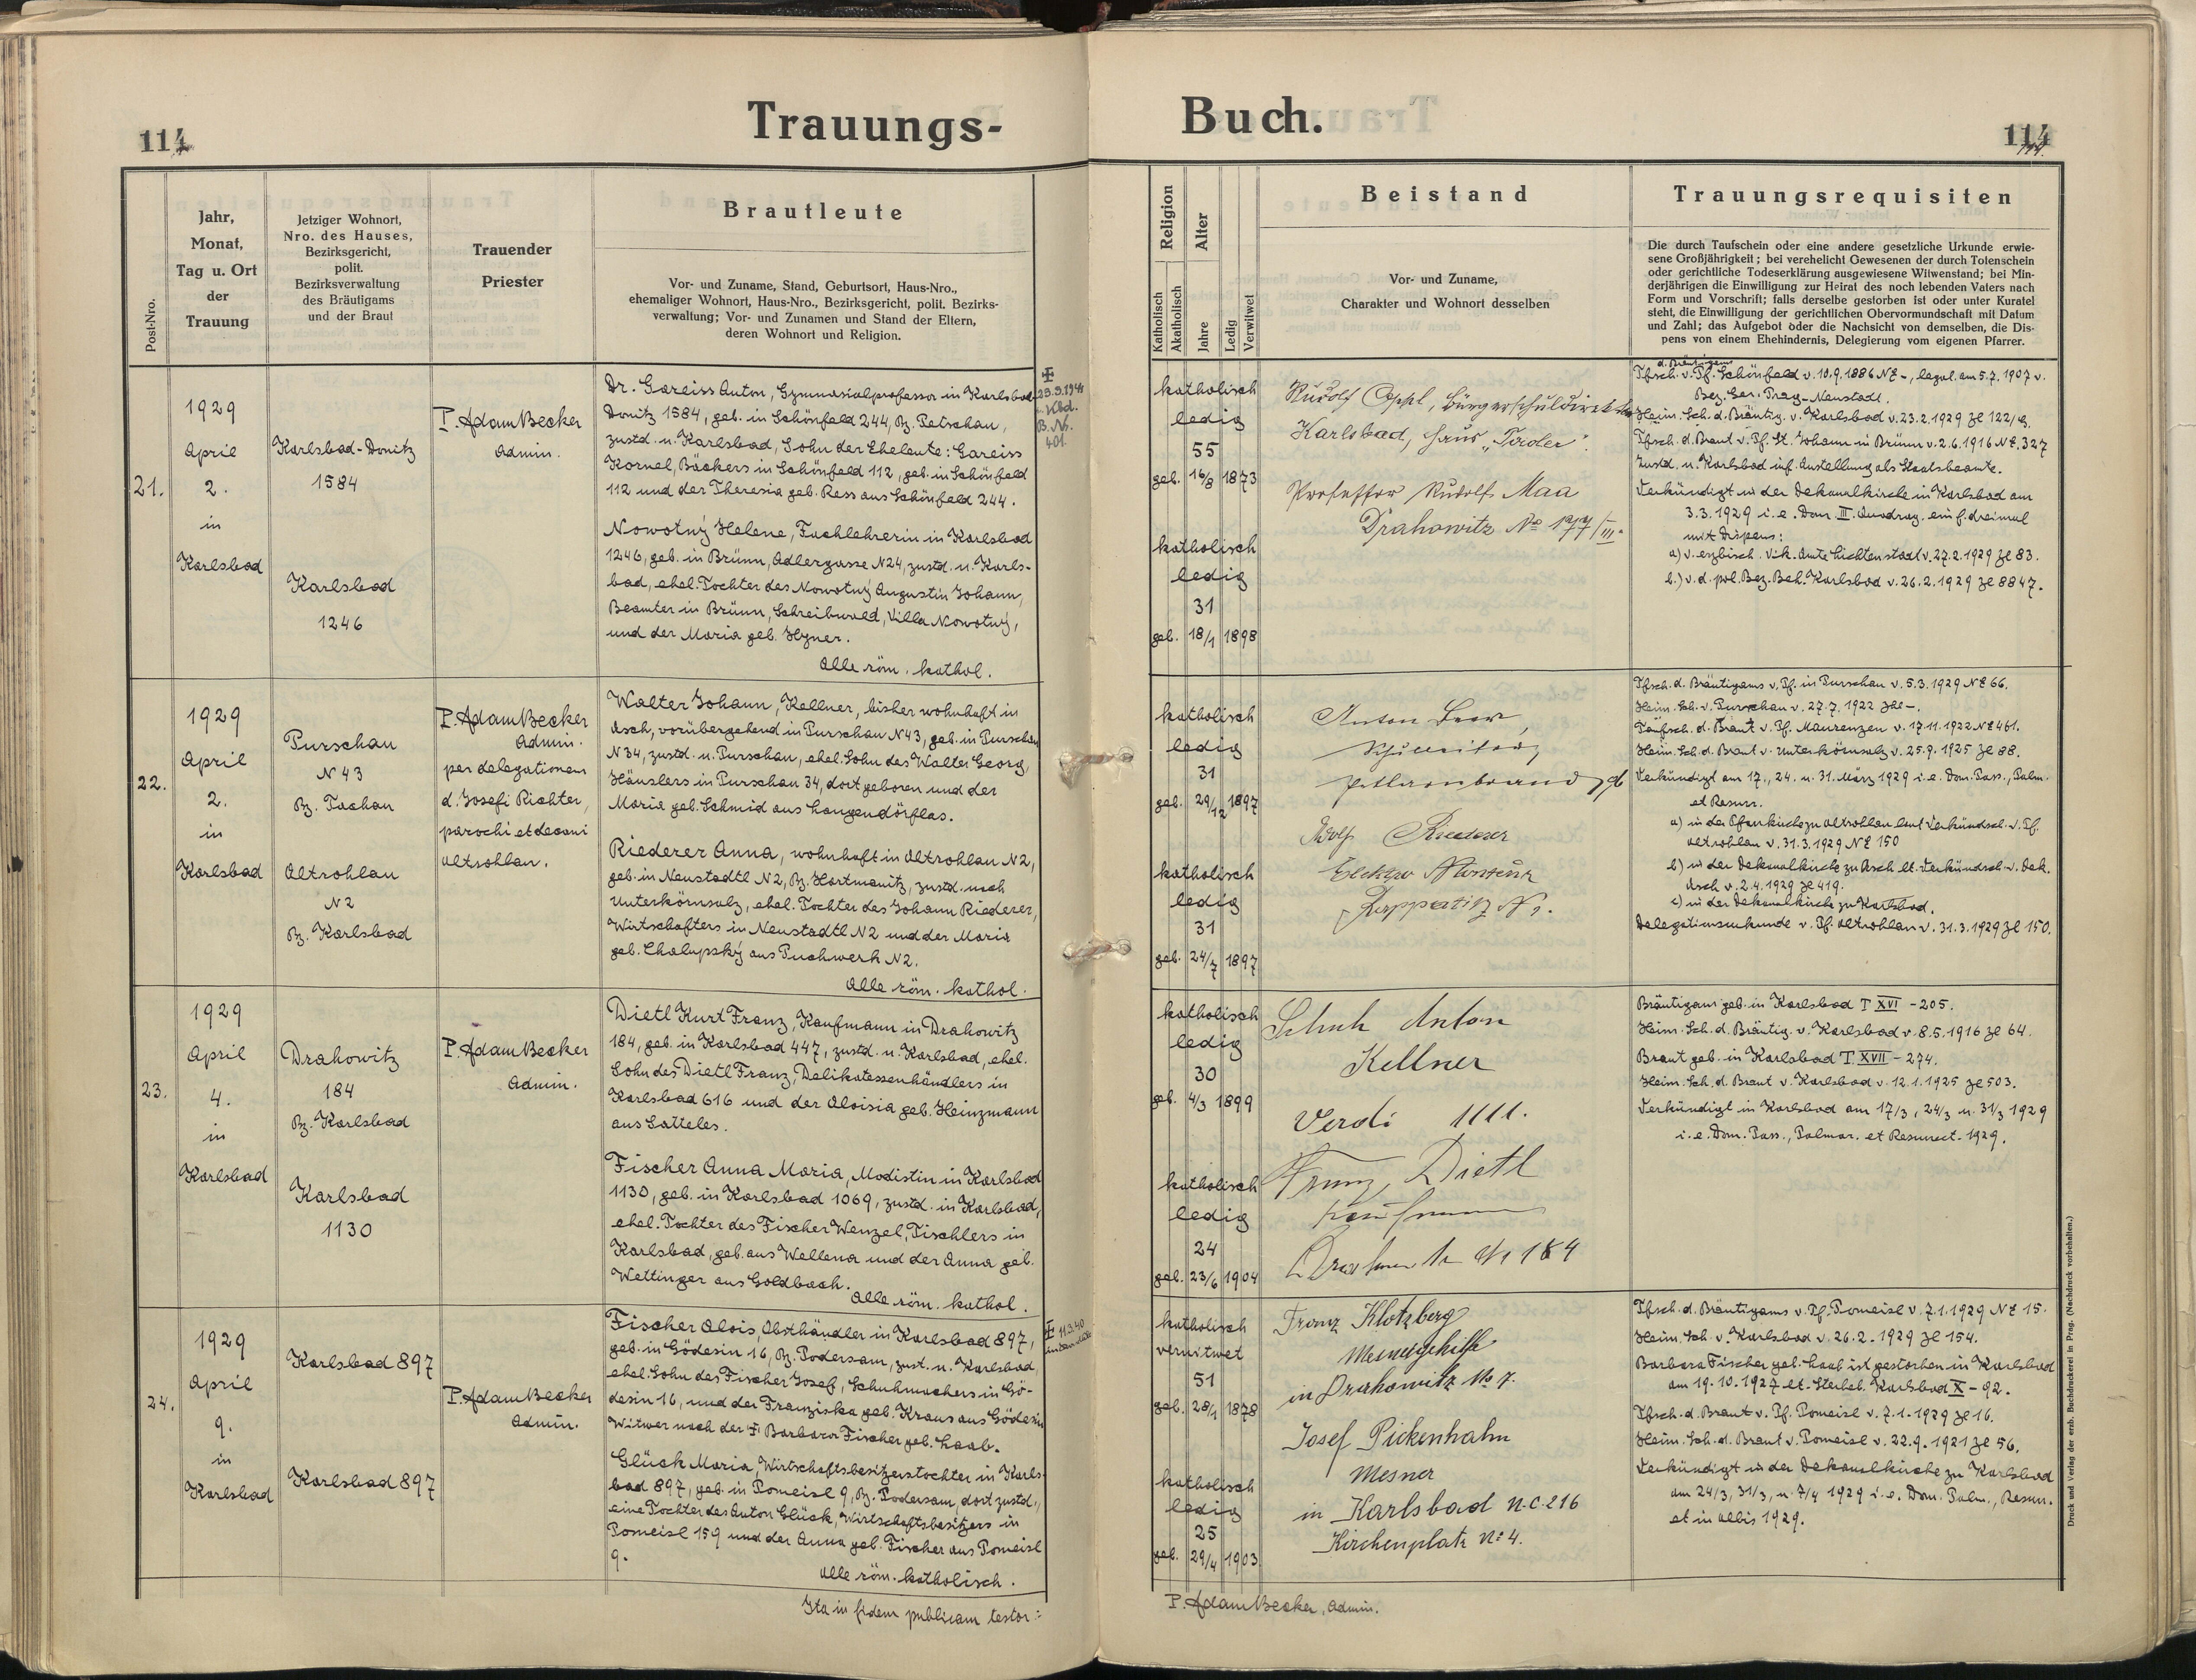 Trauungs-
Buch.
114
114
Post-Nro.
Jahr,
Monat,
Tag u. Ort
der
Trauung
Jetziger Wohnort,
Nro. des Hauses,
Bezirksgericht,
polit.
Bezirksverwaltung
des Bräutigams
und der Braut
Trauender
Priester
Brautleute
Vor- und Zuname, Stand, Geburtsort, Haus-Nro.,
ehemaliger Wohnort, Haus-Nro., Bezirksgericht, polit. Bezirks-
verwaltung; Vor- und Zunamen und Stand der Eltern,
deren Wohnort und Religion.
Religion
Katholisch
Akatholisch
Alter
Jahre
Ledig
Verwitwet
Beistand
Vor- und Zuname,
Charakter und Wohnort desselben
Trauungsrequisiten
Die durch Taufschein oder eine andere gesetzliche Urkunde erwie-
sene Großjährigkeit; bei verehelicht Gewesenen der durch Totenschein
oder gerichtliche Todeserklärung ausgewiesene Witwenstand; bei Min-
derjährigen die Einwilligung zur Heirat des noch lebenden Vaters nach
Form und Vorschrift; falls derselbe gestorben ist oder unter Kuratel
steht, die Einwilligung der gerichtlichen Obervormundschaft mit Datum
und Zahl; das Aufgebot oder die Nachsicht von demselben, die Dis-
pens von einem Ehehindernis, Delegierung vom eigenen Pfarrer.
21.
1929
April
2.
in
Karlsbad
Karlsbad-Donitz
1584
Karlsbad
1246
P. Adam Becker
Admin.
Dr. Gareiss Anton, Gymnasialprofessor in Karlsbad-
Donitz 1584, geb. in Schönfeld 244, Bz. Petschau,
zustd. n. Karlsbad, Sohn der Eheleute: Gareiss
Kornel, Bäckers in Schönfeld 112, geb. in Schönfeld
112 und der Theresia geb. Ress aus Schönfeld 244.
Nowotný Helene, Fachlehrerin in Karlsbad
1246, geb. in Brünn, Adlergasse N24, zustd. n. Karls-
bad, ehel. Tochter des Nowotný Augustin Johann,
Beamter in Brünn, Schreibwald, Villa Nowotný,
und der Maria geb. Hyner.
Alle röm. kathol.
23.9.1941
Kbd.
401
katholisch
ledig
55
geb. 16/8 1873
katholisch
ledig
31
geb. 18/1 1898
Rudolf Oppl, Bürgerschuldirektor
Karlsbad, Haus „Tiroler“.
Professor Rudolf Maa
Drahowitz No 177/III.
d. Bräutigams
Tfsch. v. Pf. Schönfeld v. 10.9.1886 NE -, legal. am 5.7.1907 v.
Bez. Ger. Prag-Neustadt.
Heim. Sch. d. Bräutig. v. Karlsbad v. 23.2.1929 Zl 122/g.
Tfsch. d. Braut v. Pf. St. Johann in Brünn v. 2.6.1916 NE. 327
Zustd. n. Karlsbad inf. Anstellung als Staatsbeamte.
Verkündigt in der Dekanalkirche in Karlsbad am
3.3.1929 i.e. Dom. III. Quadrag. ein f. dreimal
mit Dispens:
a) v. erzbisch. Vik. Amte Lichtenstadt v. 27.2.1929 Zl 83.
b.) v. d. pol. Bez. Beh. Karlsbad v. 26.2.1929 Zl 8847.
22.
1929
April
2.
in
Karlsbad
Purschau
N 43
Bz. Tachau
Altrohlau
N2
Bz. Karlsbad
P. Adam Becker
Admin.
per delegationem
d. Josefi Richter,
parochi et decani
Altrohlau.
Walter Johann, Kellner, bisher wohnhaft in
Asch, vorübergehend in Purschau N43, geb. in Purschau
N34, zustd. n. Purschau, ehel. Sohn des Walter Georg,
Häuslers in Purschau 34, dort geboren und der
Maria geb. Schmid aus Langendörflas.
Riederer Anna, wohnhaft in Altrohlau N2,
geb. in Neustadtl N2, Bz. Hartmanitz, zustd. nach
Unterkörnsalz, ehel. Tochter des Johann Riederer,
Wirtschafters in Neustadtl N2 und der Maria
geb. Chalupský aus Puchwerk N2.
Alle röm. kathol.
katholisch
ledig
31
geb. 29/12 1897
katholisch
ledig
31
geb. 24/7 1897
Anton
Adolf Riederer
Tfsch. d. Bräutigams v. Pf. in Purschau v. 5.3.1929 NE 66.
Heim. Sch. v. Purschau v. 27.7.1922 Zl -.
Taufsch. d. Braut v. Pf. Maurenzen v. 17.11.1922 NE 461.
Heim. Sch. d. Braut v. Unterkörnsalz v. 25.9.1925 Zl 88.
Verkündigt am 17., 24. u. 31. März 1929 i.e. Dom. Pass., Palm.
et Resurr.
a) in der Pfarrkirche zu Altrohlau laut Verkündsch. v. Pf.
Altrohlau v. 31.3.1929 NE 150
b) in der Dekanalkirche zu Asch lt. Verkündsch. v. Dek.
Asch v. 2.4.1929 Zl 419.
c) in der Dekanalkirche zu Karlsbad.
Delegationsurkunde v. Pf. Altrohlau v. 31.3.1929 Zl 150.
23.
1929
April
4.
in
Karlsbad
Drahowitz
184
Bz. Karlsbad
Karlsbad
1130
P. Adam Becker
Admin.
Dietl Kurt Franz, Kaufmann in Drahowitz
184, geb. in Karlsbad 447, zustd. n. Karlsbad, ehel.
Sohn des Dietl Franz, Delikatessenhändlers in
Karlsbad 616 und der Aloisia geb. Heinzmann
aus Satteles.
Fischer Anna Maria, Modistin in Karlsbad
1130, geb. in Karlsbad 1069, zustd. in Karlsbad,
ehel. Tochter des Fischer Wenzel, Tischlers in
Karlsbad, geb. aus Wellena und der Anna geb.
Wettinger aus Goldbach.
Alle röm. kathol.
katholisch
ledig
30
geb. 4/3 1899
katholisch
ledig
24
geb. 23/6 1904
Schuh Anton
Kellner
Verdi 1111.
Franz Dietl
Kaufmann
184
Bräutigam geb. in Karlsbad T XVI - 205.
Heim. Sch. d. Bräutig. v. Karlsbad v. 8.5.1916 Zl 64.
Braut geb. in Karlsbad T. XVII - 274.
Heim. Sch. d. Braut v. Karlsbad v. 12.1.1925 Zl 503.
Verkündigt in Karlsbad am 17/3, 24/3 u. 31/3 1929
i.e. Dom. Pass., Palmar. et Resurrect. 1929.
24.
1929
April
9.
in
Karlsbad
Karlsbad 897
Karlsbad 897
P. Adam Becker
Admin.
Fischer Alois, Obsthändler in Karlsbad 897,
geb. in Gödesin 16, Bz. Podersam, zust. n. Karlsbad,
ehel. Sohn des Fischer Josef, Schuhmachers in Gö-
desin 16, und der Franziska geb. Kraus aus Gödesin
Witwer nach der † Barbara Fischer geb. Laab.
Glück Maria, Wirtschaftsbesitzerstochter in Karls-
bad 897, geb. in Pomeisl 9, Bz. Podersam, dort zustd.,
eine Tochter des Anton Glück, Wirtschaftsbesitzers in
Pomeisl 159 und der Anna geb. Fischer aus Pomeisl
9.
Alle röm. katholisch.
11.3.40
katholisch
verwitwet
51
geb. 28/1 1878
katholisch
ledig
25
geb. 29/4 1903
Franz Klotzberg
Mesnergehilfe
in Drahowitz No 7.
Josef Pickenhahn
Mesner
in Karlsbad N.C. 216
Kirchenplatz No 4.
Tfsch. d. Bräutigams v. Pf. Pomeisl v. 7.1.1929 NE 15.
Heim. Sch. v. Karlsbad v. 26.2.1929 Zl 154.
Barbara Fischer geb. Laab ist gestorben in Karlsbad
am 19.10.1927 lt. Sterbeb. Karlsbad X - 92.
Tfsch. d. Braut v. Pf. Pomeisl v. 7.1.1929 Zl 16.
Heim. Sch. d. Braut v. Pomeisl v. 22.9.1921 Zl 56.
Verkündigt in der Dekanalkirche zu Karlsbad
am 24/3, 31/3, u. 7/4 1929 i.e. Dom. Palm., Resurr.
et in Albis 1929.
Ita in fidem publicam testor:
P. Adam Becker, Admin.
Druck und Verlag der erzb. Buchdruckerei in Prag. (Nachdruck vorbehalten.)